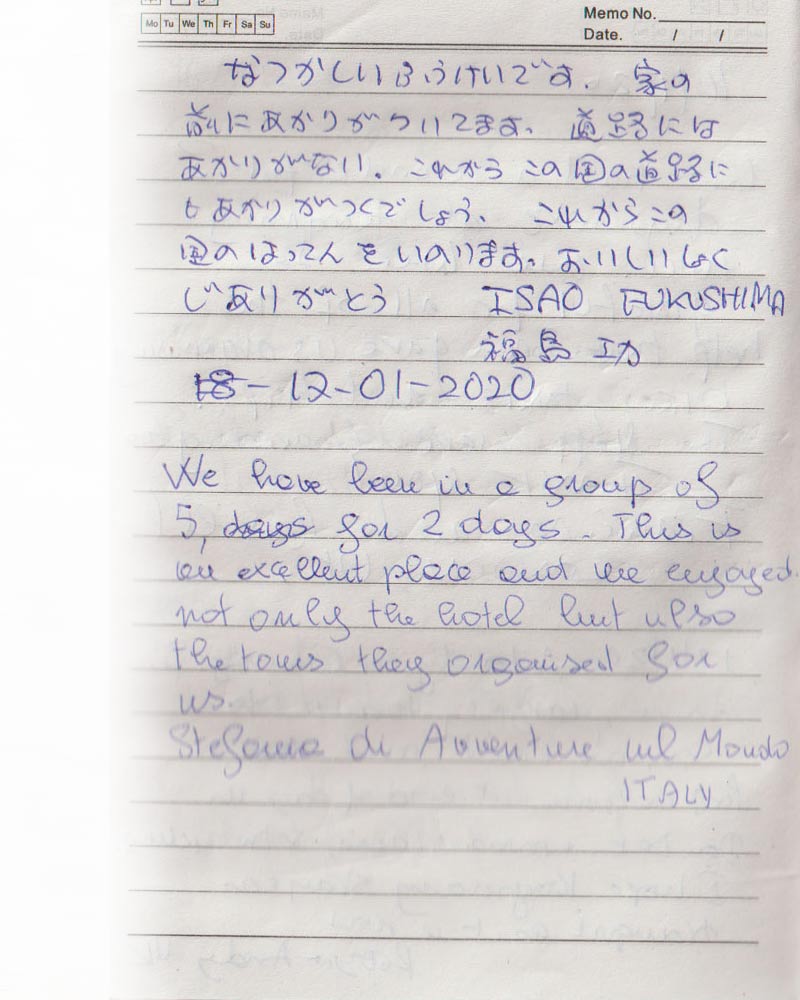 Mo Tu We Th Fr Sa Su
Memo No.
Date. / /
なつかしいふうけいです. 家の
前にあかりがついてます. 道路には
あかりがない. これからこの国の道路に
もあかりがつくでしょう. これからこの
国のはってんをいのります. おいしいしょく
じありがとう ISAO FUKUSHIMA
福島 功
18-12-01-2020
We have been in a group of
5, days for 2 days. This is
an excellent place and we engayed
not only the hotel but also
the tours they organised for
us.
Stefania di Avventure nel Mondo
ITALY